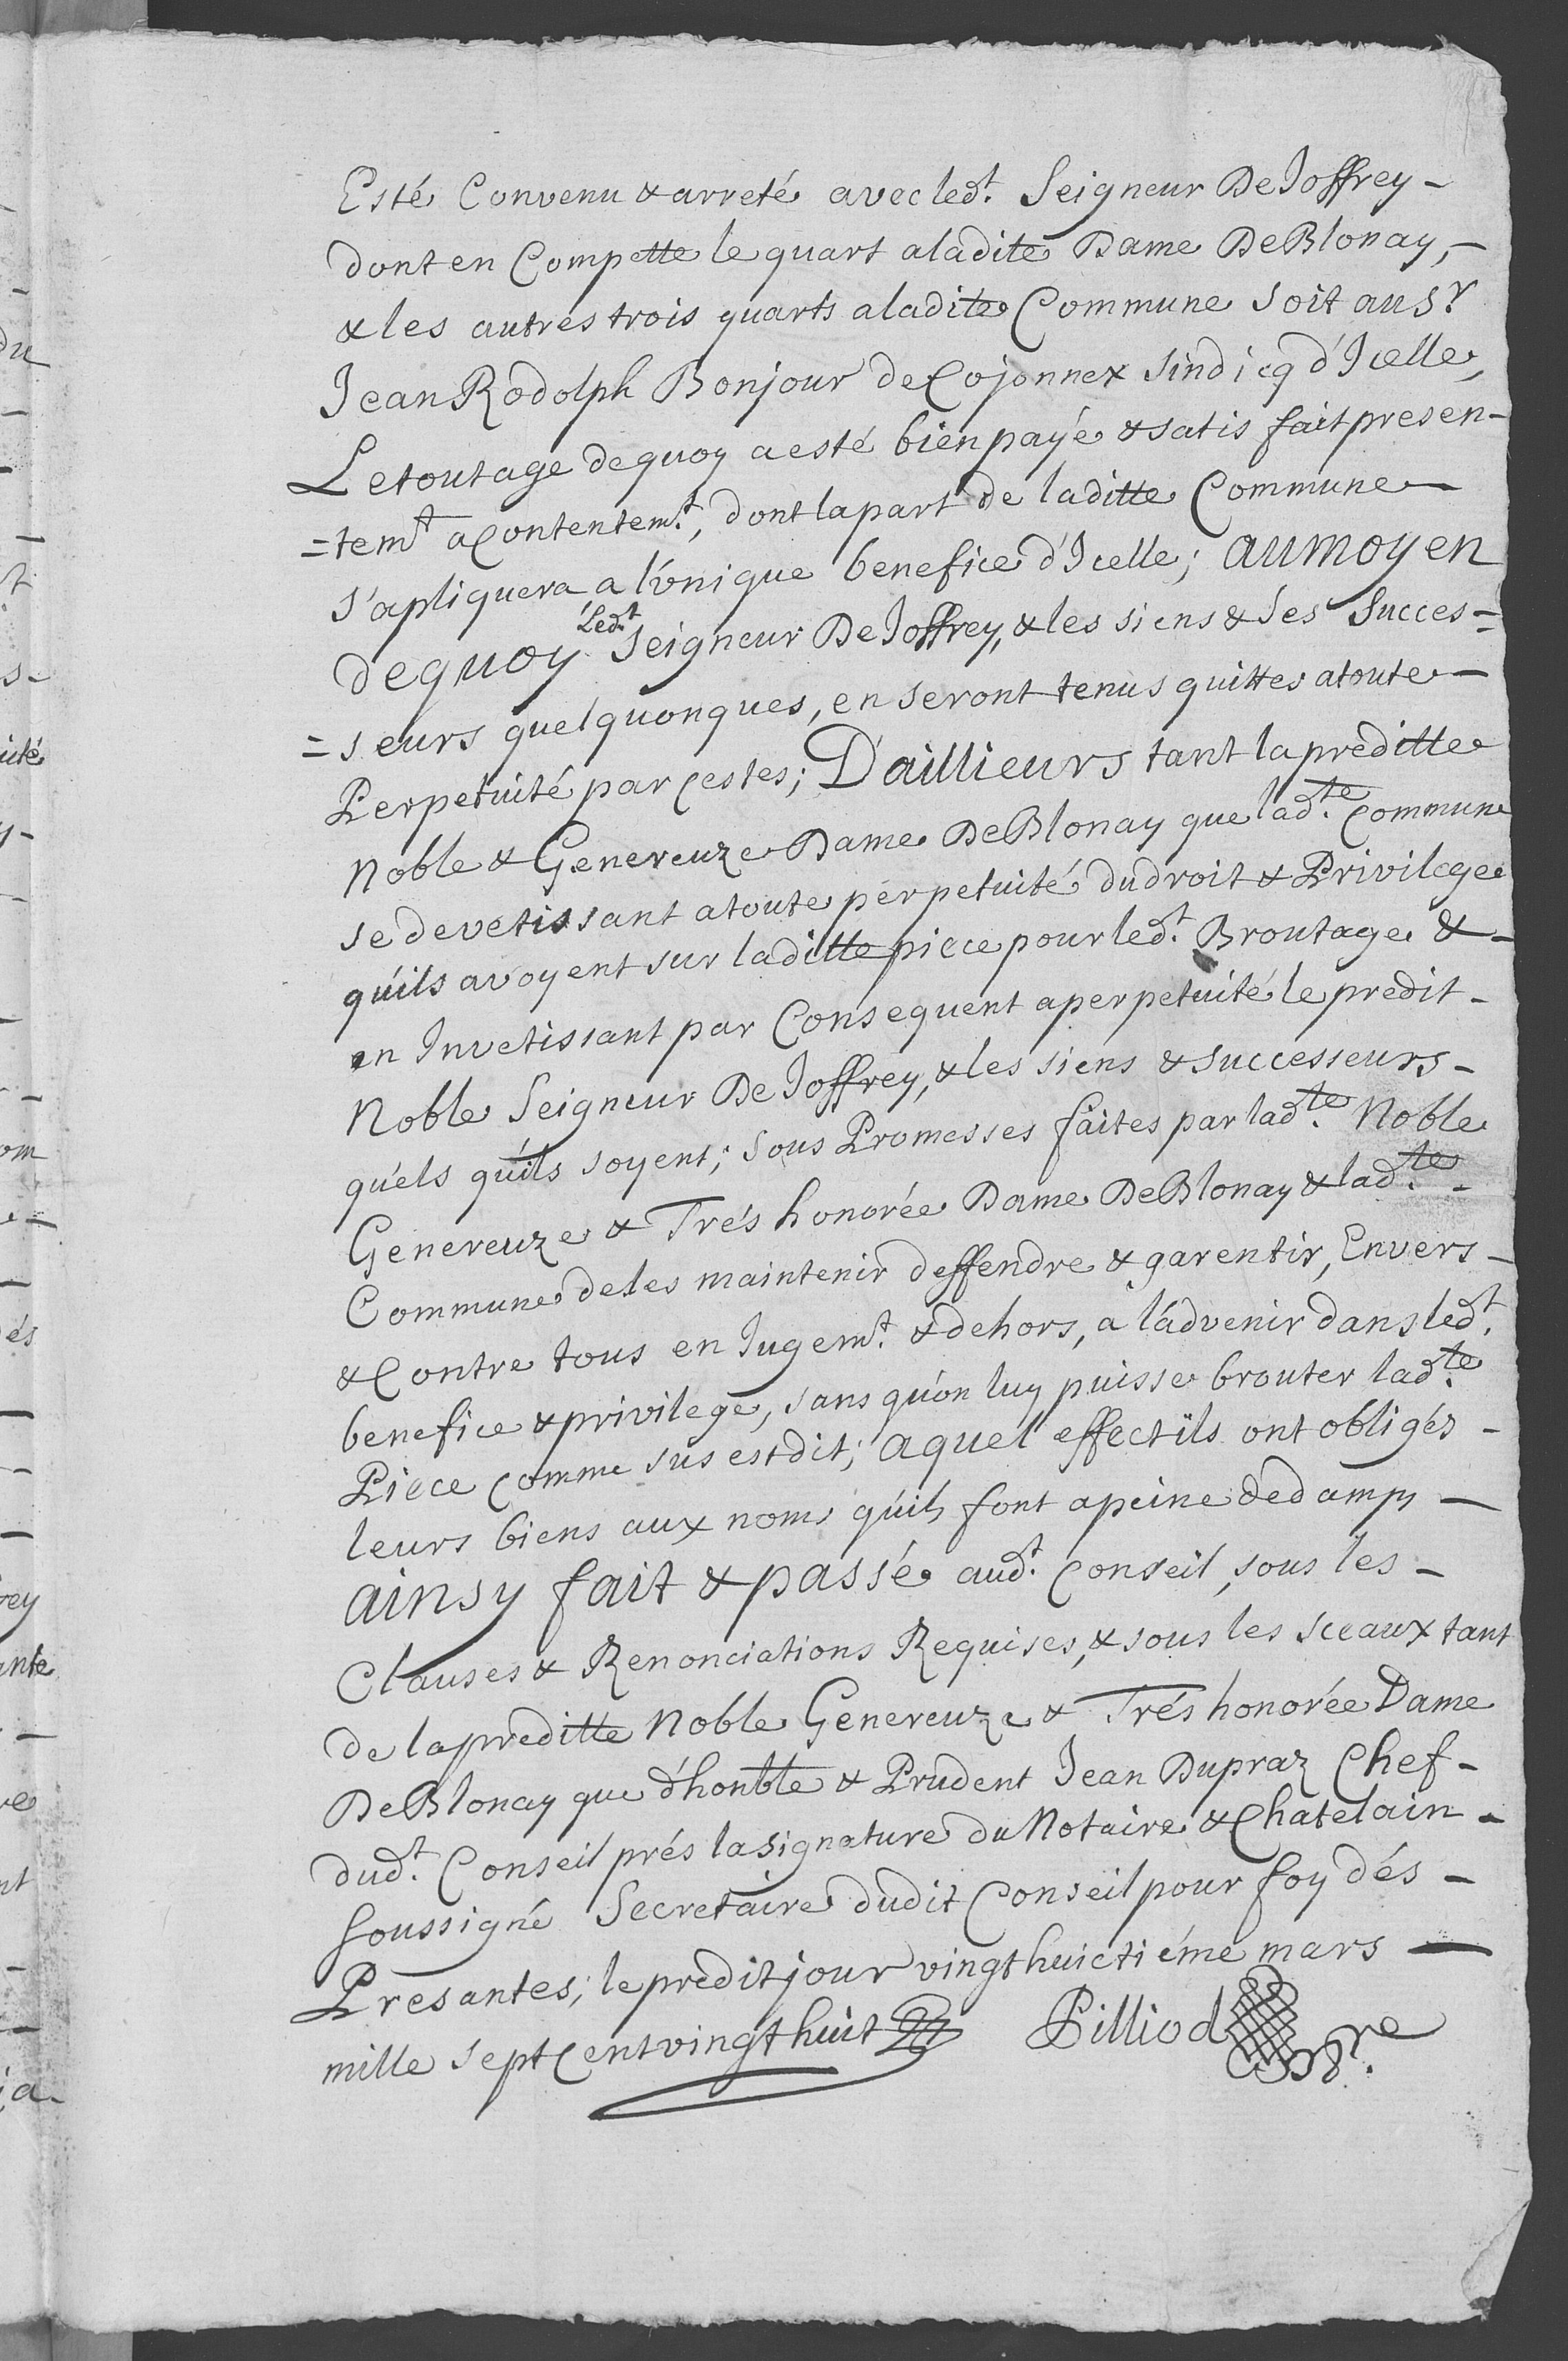 Esté Convenu & arreté avec led.t Seigneur De Joffrey -
dont en Compette le quart a ladite Dame De Blonay, -
& les autres trois quarts a ladite Commune soit au s.r
Jean Rodolph Bonjour de Cojonnex sindicq d'Icelle,
Le toutage de quoy a esté bien payé & satisfait presen-
=tem.t a Contentem.t, dont la part de laditte Commune -
s'apliquera a l'vnique benefice d'Icelle; au moyen
de quoy Led.t Seigneur De Joffrey, & les siens & ses succes=
=seurs quelquonques, en seront tenus quittes a toute -
Perpetuité par Cestes; D'aillieurs tant la preditte
Noble & Genereuze Dame De Blonay que lad.te Commune
se devetissant a toute perpetuité du droit & Privilege
qu'ils avoyent sur laditte piece pour led.t Broutage & -
en Invetissant par Consequent a perpetuité le predit -
Noble Seigneur De Joffrey, & les siens & successeurs -
qu'els qu'ils soyent; sous Promesses faites par lad.te Noble
Genereuze & Trés honorée Dame De Blonay & lad.te -
Commune de les maintenir deffendre & garentir, Envers -
& Contre tous en Jugem.t & dehors, a l'advenir dans led.t
benefice & privilege, sans qu'on luy puisse brouter lad.te
Piece comme sus est dit; a quel effect ils ont obligés -
leurs biens aux noms qu'ils font a peine de damps -
ainsy fait & passé aud.t Conseil, sous les -
Clauses & Renonciations Requises, & sous les sceaux tant
de la preditte Noble Genereuze & Trés honorée Dame
De Blonay que d'honble & Prudent Jean Dupraz Chef -
dud.t Conseil prés la signature du Notaire & Chatelain -
soussigné Secretaire dudit Conseil pour foy dés -
Presantes; le predit jour vingt huictiéme mars -
mille sept Cent vingt huit Pilliod